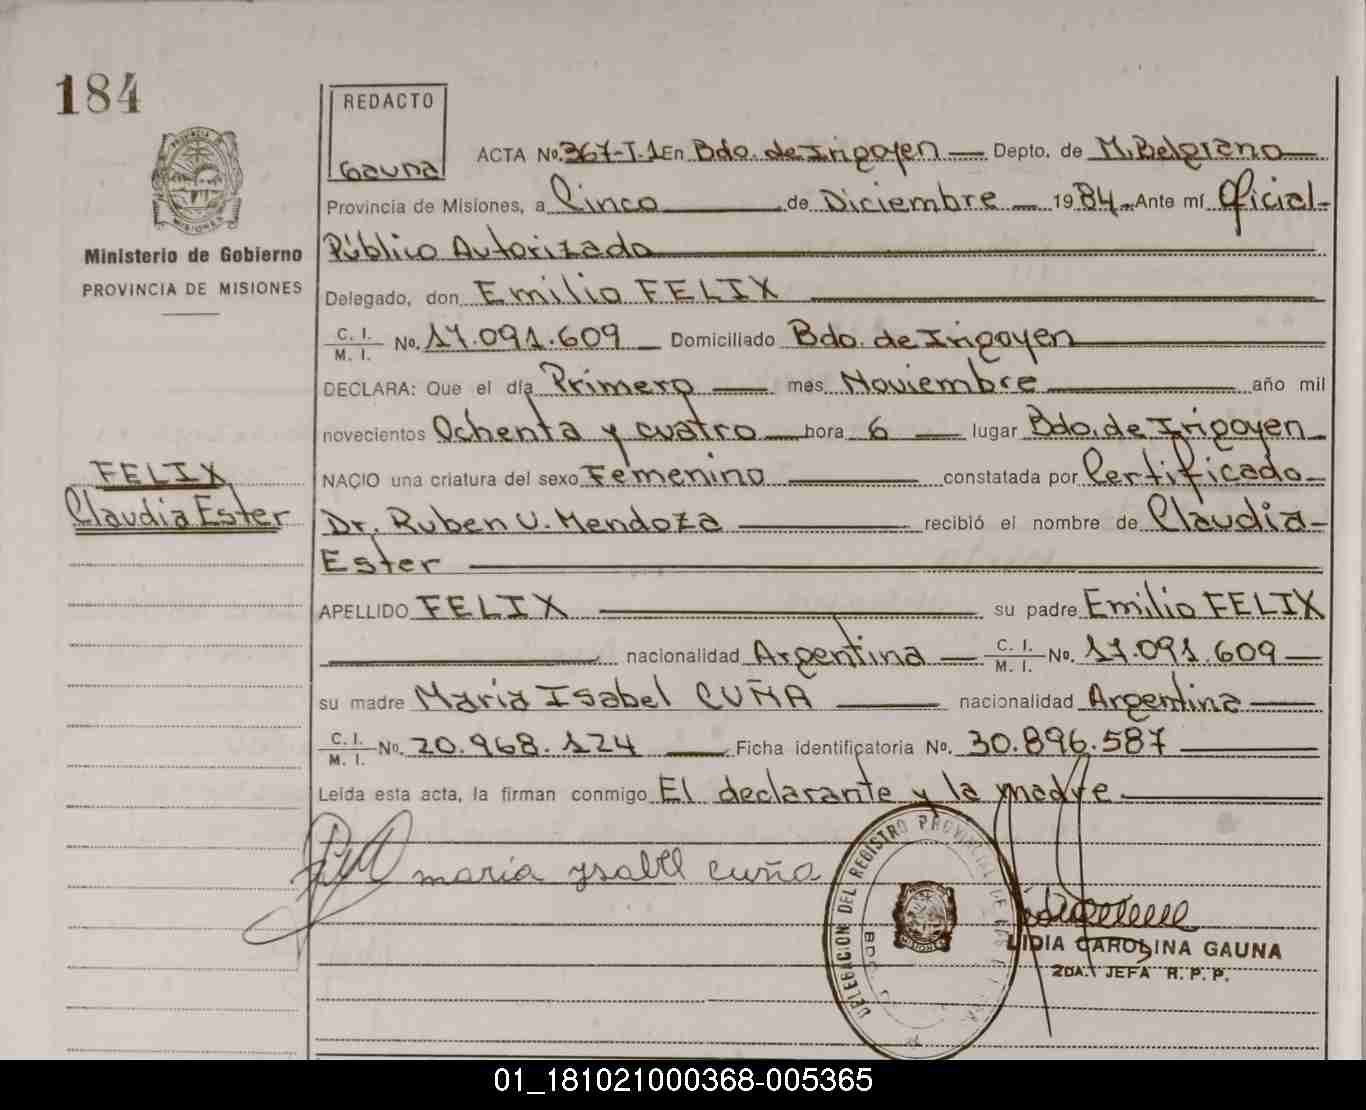 184
REDACTO
Gauna
ACTA No. 367-T.1 En Bdo. de Irigoyen Depto. de M. Belgrano
Provincia de Misiones, a Cinco de Diciembre 1984 Ante mí Oficial
Público Autorizado
Ministerio de Gobierno
PROVINCIA DE MISIONES
Delegado, don Emilio FELIX
C. I.
M. I. No. 17.091.609 Domiciliado Bdo. de Irigoyen
DECLARA: Que el día Primero mes Noviembre año mil
novecientos Ochenta y cuatro hora 6 lugar Bdo. de Irigoyen
FELIX
Claudia Ester
NACIO una criatura del sexo Femenino constatada por Certificado
Dr. Ruben U. Mendoza recibió el nombre de Claudia
Ester
APELLIDO FELIX su padre Emilio FELIX
nacionalidad Argentina C. I.
M. I. No. 17.091.609
su madre Maria Isabel CUÑA nacionalidad Argentina
C. I.
M. I. No. 20.968.124 Ficha identificatoria No. 30.896.587
Leída esta acta, la firman conmigo El declarante y la madre.
maria ysabel cuña
DELEGACION DEL REGISTRO PROVINCIAL DE LAS PERSONAS
LIDIA CAROLINA GAUNA
2DA. JEFA R. P. P.
01_181021000368-005365